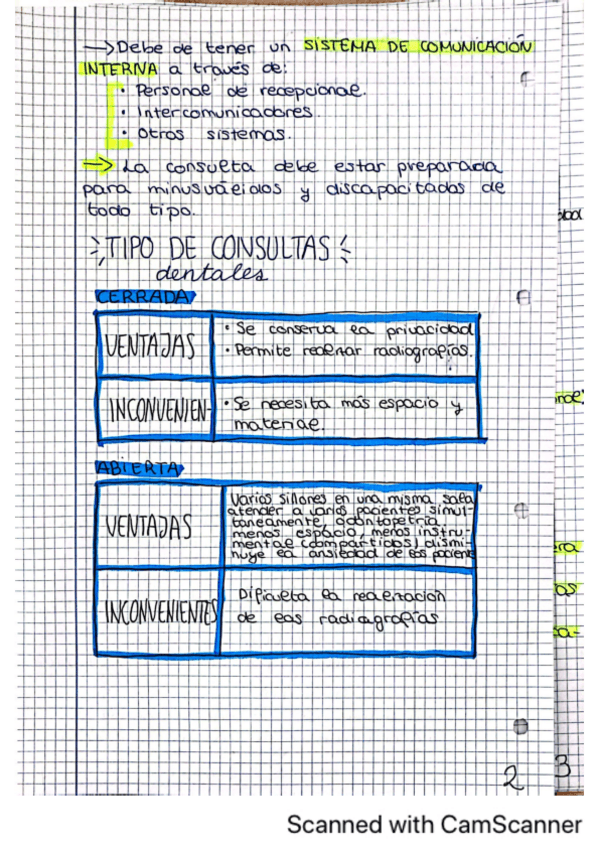 →Debe de tener un SISTEMA DE COMUNICACIÓN
INTERNA a través de:
· Personal de recepcional.
· Intercomunicadores.
· Otros sistemas.
→ La consulta debe estar preparada
para minusválidos y discapacitados de
todo tipo.
TIPO DE CONSULTAS
dentales
CERRADA
VENTAJAS
· Se conserva la privacidad
· Permite realizar radiografías.
INCONVENIEN-
· Se necesita más espacio y
material.
ABIERTA
VENTAJAS
Varios sillones en una misma sala
atender a varios pacientes simul-
taneamente, odontopetría
menos espacio, menos instru-
mental (compartidos) dismi-
nuye la ansiedad de los pacient
INCONVENIENTES
Dificulta la realización
de las radiografías
2
3
Scanned with CamScanner